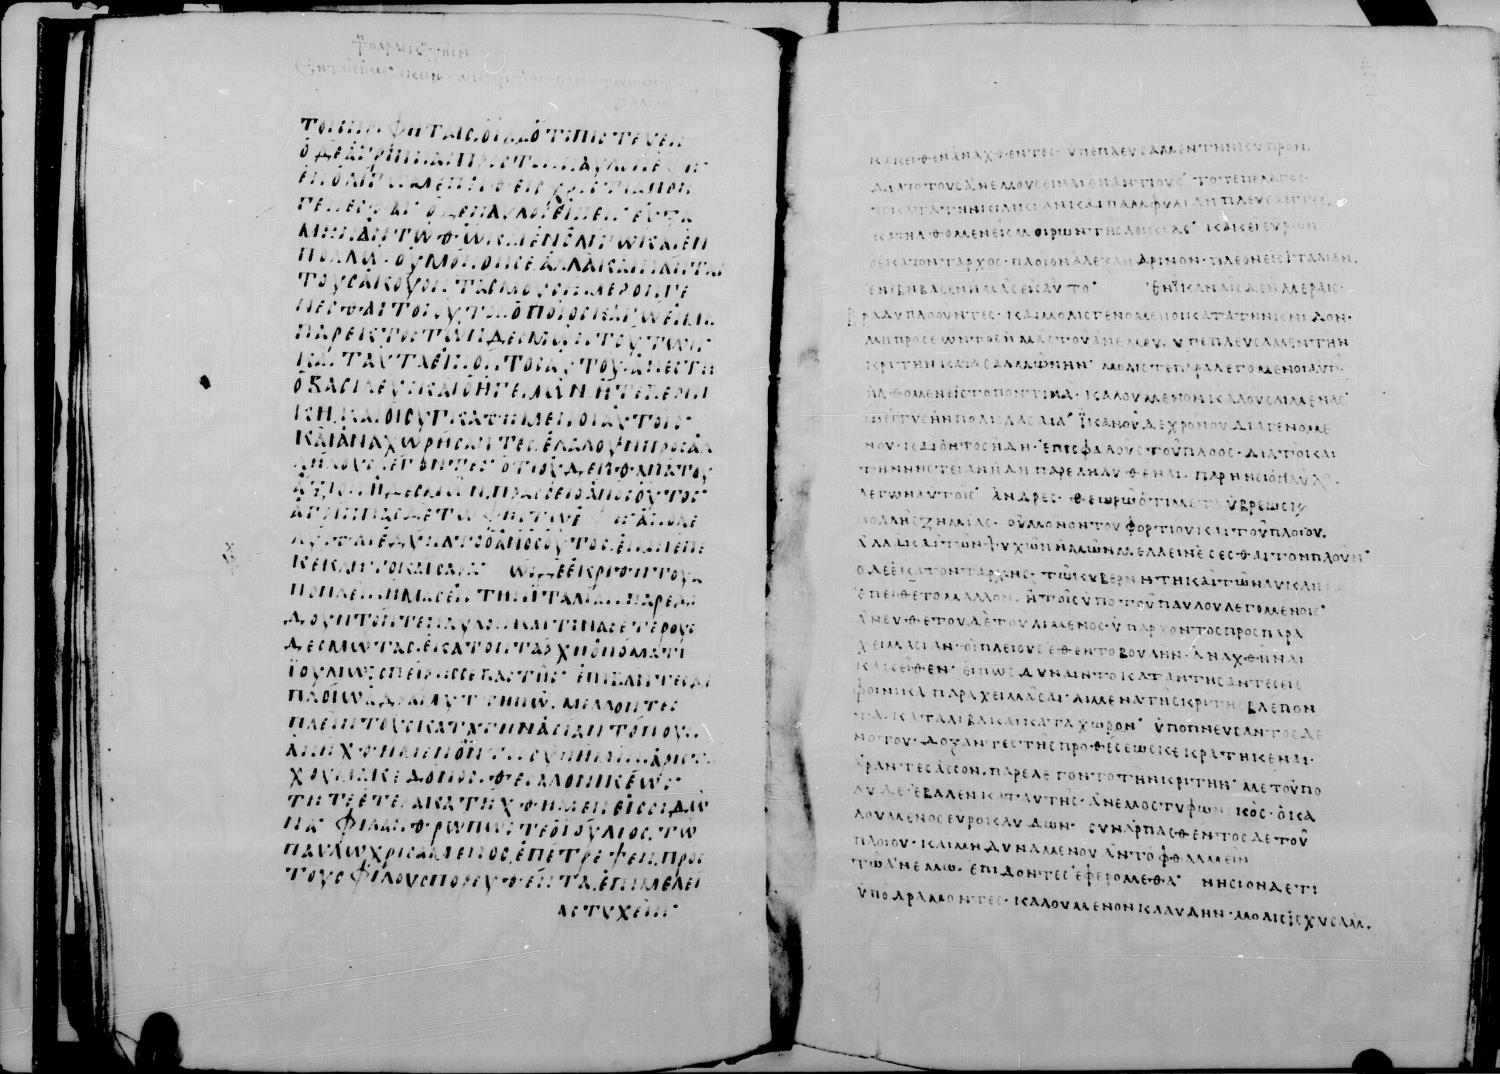 τοιϲ προφηταιϲ. οιδα οτι πιϲτευειϲ
ο δε αγριππαϲ προϲ τον παυλον εφη
εν ολιγω με πειθειϲ χριϲτιανον
γενεϲθαι· ο δε παυλοϲ ειπεν· ευξα
μην αν τω θω και εν ολιγω και εν
πολλω· ου μονον ϲε αλλα και πανταϲ
τουϲ ακουονταϲ μου ϲημερον γε
νεϲθαι τοιουτουϲ οποιοϲ καγω ειμι
παρεκτοϲ των δεϲμων τουτων
και ταυτα ειποντοϲ αυτου. ανεϲτη
ο βαϲιλευϲ και ο ηγεμων. η τε βερνι
κη. και οι ϲυγκαθημενοι αυτοιϲ·
και αναχωρηϲαντεϲ. ελαλουν προϲ αλ
ληλουϲ λεγοντεϲ· οτι ουδεν θανατου
αξιον η δεϲμων. πραϲϲει ο ανοϲ ουτοϲ·
αγριππαϲ δε τω φηϲτω εφη· απολε
λυϲθαι εδυνατο ο ανοϲ ουτοϲ. ει μη επε
κεκλητο καιϲαρα· ωϲ δε εκριθη του α
ποπλειν ημαϲ ειϲ την ϊταλιαν. παρεδι
δουν τον τε παυλον και τιναϲ ετερουϲ
δεϲμωταϲ. εκατονταρχη ονοματι
ϊουλιω. ϲπειρηϲ ϲεβαϲτηϲ· επιβαντεϲ δε
πλοιω αδραμυττηνω. μελλοντεϲ
πλειν τουϲ κατα την αϲιαν τοπουϲ.
ανηχθημεν οντοϲ ϲυν ημιν. αριϲτα
χου μακεδονοϲ. θεϲϲαλονικεωϲ·
τη τε ετερα κατηχθημεν ειϲ ϲιδω
να· φιλανθρωπωϲ τε ο ϊουλιοϲ. τω
παυλω χρηϲαμενοϲ. επετρεψεν. προϲ
τουϲ φιλουϲ πορευθεντα. επιμελει
αϲ τυχειν·
κακειθεν αναχθεντεϲ· υπεπλευϲαμεν την κυπρον.
δια το τουϲ ανεμουϲ ειναι εναντιουϲ· το τε πελαγοϲ
το κατα την κιλικιαν και παμφυλιαν πλευϲαντεϲ.
κατηλθομεν ειϲ μοιρων τηϲ λυκιαϲ· κακει ευρων
ο εκατονταρχοϲ· πλοιον αλεξανδρινον· πλεον ειϲ ϊταλιαν.
ενεβηβαϲεν ημαϲ ειϲ αυτο· εν ϊκαναιϲ δε ημεραιϲ·
βραδυπλοουντεϲ· και μολιϲ γενομενοι κατα την κνιδον·
μη προϲεωντοϲ ημαϲ του ανεμου. υπεπλευϲαμεν την
κριτην κατα ϲαλμωνην· μολιϲ τε παραλεγομενοι αυτην.
ηλθομεν ειϲ τοπον τινα· καλουμενον καλουϲ λιμεναϲ·
ω εγγυϲ ην πολιϲ λαϲαια· ϊκανου δε χρονου διαγενομε
νου· και οντοϲ ηδη· επιϲφαλουϲ του πλοοϲ· δια το και
την νηϲτειαν ηδη παρεληλυθεναι· παρηνει ο παυλοϲ
λεγων αυτοιϲ· ανδρεϲ· θεωρω οτι μετα υβρεωϲ κ
πολληϲ ζημιαϲ· ου μονον του φορτιου και του πλοιου.
αλλα και των ψυχων ημων μελλειν εϲεϲθαι τον πλουν·
ο δε εκατονταρχηϲ· τω κυβερνητη και τω ναυκληρω
επειθετο μαλλον. η τοιϲ υπο του παυλου λεγομενοιϲ·
ανευθετου δε του λιμενοϲ· υπαρχοντοϲ προϲ παρα
χειμαϲιαν· οι πλειουϲ εθεντο βουλην· αναχθηναι
κακειθεν· ει πωϲ δυναιντο καταντηϲαντεϲ ειϲ
φοινικα παραχειμαϲαι· λιμενα τηϲ κριτηϲ βλεπον
τα. κατα λιβα και κατα χωρον· υποπνευϲαντοϲ δε
νοτου· δοξαντεϲ τηϲ προθεϲεωϲ κεκρατηκεναι·
αραντεϲ αϲϲον. παρελεγοντο την κριτην· μετ ου πο
λυ δε εβαλεν κατ αυτηϲ· ανεμοϲ τυφωνικοϲ· ο κα
λουμενοϲ ευροκλυδων· ϲυναρπαϲθεντοϲ δε του
πλοιου· και μη δυναμενου αντοφθαλμειν
τω ανεμω. επιδοντεϲ εφερομεθα· νηϲιον δε τι
υποδραμοντεϲ· καλουμενον κλαυδην· μολιϲ ϊϲχυϲαμ.